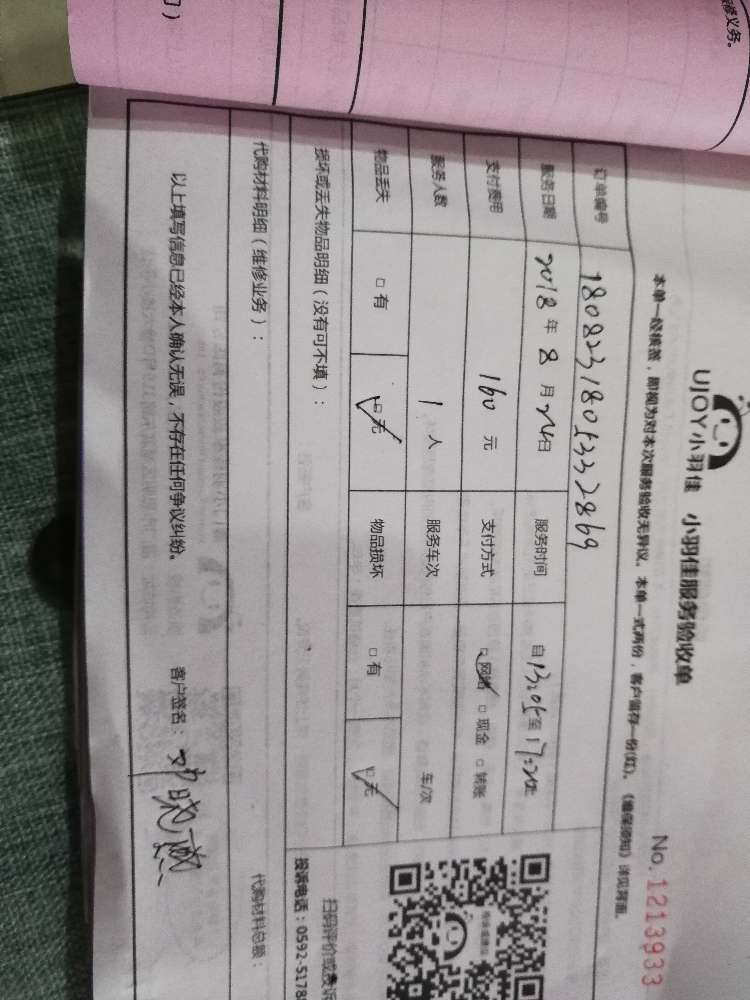 修义务。
UJOY小羽佳 小羽佳服务验收单
No.1213933
本单一经核签，即视为对本次服务验收无异议。本单一式两份，客户留存一份(红)。《维保须知》详见背面。
订单编号 18082318053332869
服务日期 2018年8月24日 服务时间 自13:05至17:20止
支付费用 160元 支付方式 □网络 □现金 □转账
服务人数 1人 服务车次 车/次
物品丢失 □有 □无 物品损坏 □有 □无
损坏或丢失物品明细（没有可不填）：
代购材料明细（维修业务）： 代购材料总额：
以上填写信息已经本人确认无误，不存在任何争议纠纷。 客户签名：邓晓燕
扫码评价或投诉
投诉电话：0592-5178